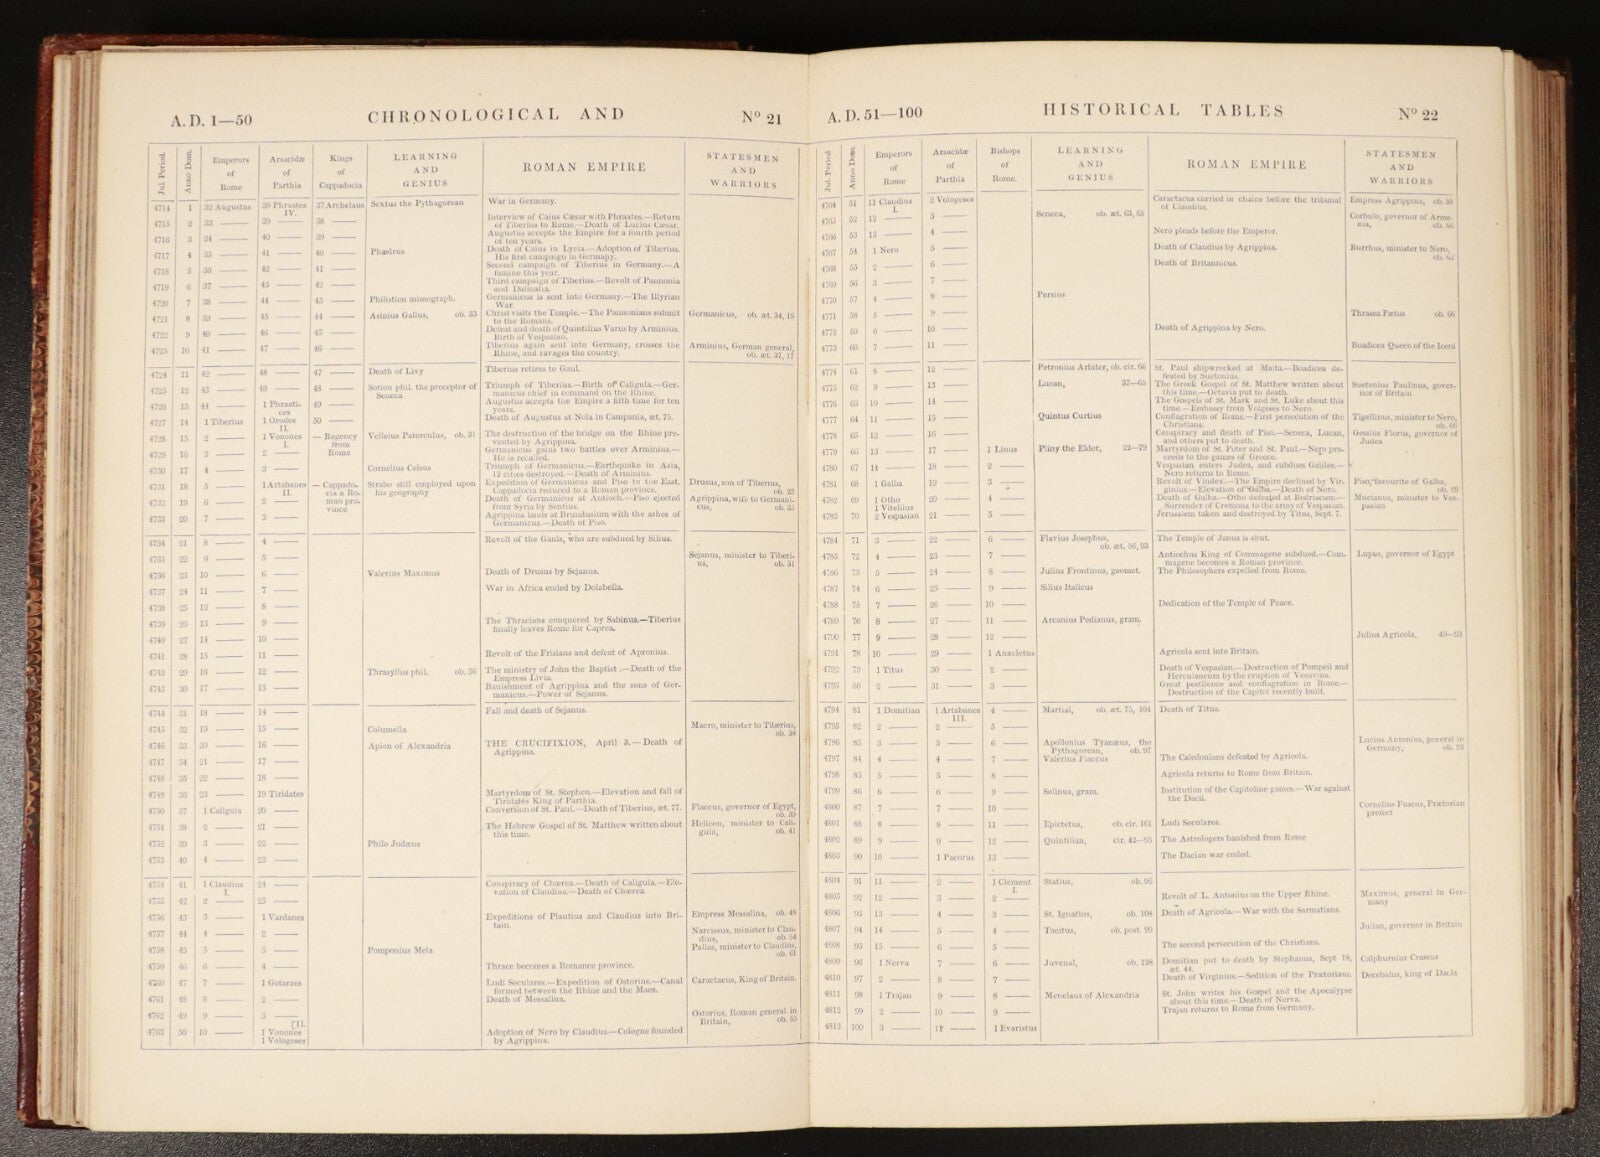 A.D. 1—50
CHRONOLOGICAL AND
Nº 21
Jul. Period.
Anno Dom.
Emperors of Rome
Arsacidæ of Parthia
Kings of Cappadocia
LEARNING AND GENIUS
ROMAN EMPIRE
STATESMEN AND WARRIORS
4714 1 32 Augustus 38 Phraates IV. 37 Archelaus Sextus the Pythagorean War in Germany.
4715 2 33 —— 39 —— 38 —— Interview of Caius Cæsar with Phraates.—Return of Tiberius to Rome.—Death of Lucius Cæsar.
4716 3 34 —— 40 —— 39 —— Augustus accepts the Empire for a fourth period of ten years.
4717 4 35 —— 41 —— 40 —— Phædrus Death of Caius in Lycia.—Adoption of Tiberius. His first campaign in Germany.
4718 5 36 —— 42 —— 41 —— Second campaign of Tiberius in Germany.—A famine this year.
4719 6 37 —— 43 —— 42 —— Third campaign of Tiberius.—Revolt of Pannonia and Dalmatia.
4720 7 38 —— 44 —— 43 —— Philistion mimograph. Germanicus is sent into Germany.—The Illyrian War.
4721 8 39 —— 45 —— 44 —— Asinius Gallus, ob. 33 Christ visits the Temple.—The Pannonians submit to the Romans. Germanicus, ob. æt. 34, 19
4722 9 40 —— 46 —— 45 —— Defeat and death of Quintilius Varus by Arminius. Birth of Vespasian.
4723 10 41 —— 47 —— 46 —— Tiberius again sent into Germany, crosses the Rhine, and ravages the country. Arminius, German general, ob. æt. 37, 17
4724 11 42 —— 48 —— 47 —— Death of Livy Tiberius retires to Gaul.
4725 12 43 —— 49 —— 48 —— Sotion phil. the preceptor of Seneca Triumph of Tiberius.—Birth of Caligula.—Germanicus chief in command on the Rhine.
4726 13 44 —— 1 Phraatices 49 —— Augustus accepts the Empire a fifth time for ten years.
4727 14 1 Tiberius 1 Orodes II. 50 —— Death of Augustus at Nola in Campania, æt. 75.
4728 15 2 —— 1 Vonones I. — Regency from Rome Velleius Paterculus, ob. 31 The destruction of the bridge on the Rhine prevented by Agrippina.
4729 16 3 —— 2 —— Germanicus gains two battles over Arminius.—He is recalled.
4730 17 4 —— 3 —— Cornelius Celsus Triumph of Germanicus.—Earthquake in Asia, 12 cities destroyed.—Death of Arminius.
4731 18 5 —— 1 Artabanes II. — Cappadocia a Roman province Strabo still employed upon his geography Expedition of Germanicus and Piso to the East. Cappadocia reduced to a Roman province. Drusus, son of Tiberius, ob. 23
4732 19 6 —— 2 —— Death of Germanicus at Antioch.—Piso ejected from Syria by Sentius. Agrippina, wife to Germanicus, ob. 35
4733 20 7 —— 3 —— Agrippina lands at Brundusium with the ashes of Germanicus.—Death of Piso.
4734 21 8 —— 4 —— Revolt of the Gauls, who are subdued by Silius.
4735 22 9 —— 5 —— Sejanus, minister to Tiberius, ob. 31
4736 23 10 —— 6 —— Valerius Maximus Death of Drusus by Sejanus.
4737 24 11 —— 7 —— War in Africa ended by Dolabella.
4738 25 12 —— 8 ——
4739 26 13 —— 9 —— The Thracians conquered by Sabinus.—Tiberius finally leaves Rome for Caprea.
4740 27 14 —— 10 ——
4741 28 15 —— 11 —— Revolt of the Frisians and defeat of Apronius.
4742 29 16 —— 12 —— Thrasyllus phil. ob. 36 The ministry of John the Baptist.—Death of the Empress Livia.
4743 30 17 —— 13 —— Banishment of Agrippina and the sons of Germanicus.—Power of Sejanus.
4744 31 18 —— 14 —— Fall and death of Sejanus.
4745 32 19 —— 15 —— Columella Macro, minister to Tiberius, ob. 38
4746 33 20 —— 16 —— Apion of Alexandria THE CRUCIFIXION, April 3.—Death of Agrippina.
4747 34 21 —— 17 ——
4748 35 22 —— 18 ——
4749 36 23 —— 19 Tiridates Martyrdom of St. Stephen.—Elevation and fall of Tiridates King of Parthia.
4750 37 1 Caligula 20 —— Conversion of St. Paul.—Death of Tiberius, æt. 77. Flaccus, governor of Egypt, ob. 39
4751 38 2 —— 21 —— The Hebrew Gospel of St. Matthew written about this time. Helicon, minister to Caligula, ob. 41
4752 39 3 —— 22 —— Philo Judæus
4753 40 4 —— 23 ——
4754 41 1 Claudius I. 24 —— Conspiracy of Chærea.—Death of Caligula.—Elevation of Claudius.—Death of Chærea.
4755 42 2 —— 25 ——
4756 43 3 —— 1 Vardanes Expeditions of Plautius and Claudius into Britain. Empress Messalina, ob. 48
4757 44 4 —— 2 —— Narcissus, minister to Claudius, ob. 54
4758 45 5 —— 3 —— Pomponius Mela Pallas, minister to Claudius, ob. 61
4759 46 6 —— 4 —— Thrace becomes a Romance province.
4760 47 7 —— 1 Gotarzes Ludi Seculares.—Expedition of Ostorius.—Canal formed between the Rhine and the Maes. Caractacus, King of Britain.
4761 48 8 —— 2 —— Death of Messalina.
4762 49 9 —— 3 —— Ostorius, Roman general in Britain, ob. 55
4763 50 10 —— 1 Vonones [II. 1 Vologeses Adoption of Nero by Claudius.—Cologne founded by Agrippina.
A.D. 51—100
HISTORICAL TABLES
Nº 22
Jul. Period
Anno Dom.
Emperors of Rome
Arsacidæ of Parthia
Bishops of Rome.
LEARNING AND GENIUS
ROMAN EMPIRE
STATESMEN AND WARRIORS
4764 51 11 Claudius I. 2 Vologeses Caractacus carried in chains before the tribunal of Claudius. Empress Agrippina, ob. 59
4765 52 12 —— 3 —— Seneca, ob. æt. 63, 65 Corbulo, governor of Armenia, ob. 66
4766 53 13 —— 4 —— Nero pleads before the Emperor.
4767 54 1 Nero 5 —— Death of Claudius by Agrippina. Burrhus, minister to Nero, ob. 62
4768 55 2 —— 6 —— Death of Britannicus.
4769 56 3 —— 7 ——
4770 57 4 —— 8 —— Persius
4771 58 5 —— 9 —— Thrasea Pætus ob. 66
4772 59 6 —— 10 —— Death of Agrippina by Nero.
4773 60 7 —— 11 —— Boadicea Queen of the Iceni
4774 61 8 —— 12 —— Petronius Arbiter, ob. cir. 66 St. Paul shipwrecked at Malta.—Boadicea defeated by Suetonius.
4775 62 9 —— 13 —— Lucan, 37—65 The Greek Gospel of St. Matthew written about this time.—Octavia put to death. Suetonius Paulinus, governor of Britain
4776 63 10 —— 14 —— The Gospels of St. Mark and St. Luke about this time.—Embassy from Volgeses to Nero.
4777 64 11 —— 15 —— Quintus Curtius Conflagration of Rome.—First persecution of the Christians. Tigellinus, minister to Nero, ob. 66
4778 65 12 —— 16 —— Conspiracy and death of Piso.—Seneca, Lucan, and others put to death. Gessius Florus, governor of Judea
4779 66 13 —— 17 —— 1 Linus Pliny the Elder, 22—79 Martyrdom of St. Peter and St. Paul.—Nero proceeds to the games of Greece.
4780 67 14 —— 18 —— 2 —— Vespasian enters Judea, and subdues Galilee.—Nero returns to Rome.
4781 68 1 Galba 19 —— 3 —— Revolt of Vindex.—The Empire declined by Virginius.—Elevation of Galba.—Death of Nero. Piso, favourite of Galba, ob. 69
4782 69 1 Otho 1 Vitellius 20 —— 4 —— Death of Galba.—Otho defeated at Bedriacum.—Surrender of Cremona to the army of Vespasian. Mucianus, minister to Vespasian
4783 70 2 Vespasian 21 —— 5 —— Jerusalem taken and destroyed by Titus, Sept. 7.
4784 71 3 —— 22 —— 6 —— Flavius Josephus, ob. æt. 56, 93 The Temple of Janus is shut.
4785 72 4 —— 23 —— 7 —— Antiochus King of Commagene subdued.—Commagene becomes a Roman province. Lupus, governor of Egypt
4786 73 5 —— 24 —— 8 —— Julius Frontinus, geomet. The Philosophers expelled from Rome.
4787 74 6 —— 25 —— 9 —— Silius Italicus
4788 75 7 —— 26 —— 10 —— Dedication of the Temple of Peace.
4789 76 8 —— 27 —— 11 —— Arcanius Pedianus, gram.
4790 77 9 —— 28 —— 12 —— Julius Agricola, 40—93
4791 78 10 —— 29 —— 1 Anacletus Agricola sent into Britain.
4792 79 1 Titus 30 —— 2 —— Death of Vespasian.—Destruction of Pompeii and Herculaneum by the eruption of Vesuvius.
4793 80 2 —— 31 —— 3 —— Great pestilence and conflagration in Rome.—Destruction of the Capitol recently built.
4794 81 1 Domitian 1 Artabanes III. 4 —— Martial, ob. æt. 75, 104 Death of Titus.
4795 82 2 —— 2 —— 5 ——
4796 83 3 —— 3 —— 6 —— Apollonius Tyanæus, the Pythagorean, ob. 97 Lucius Antonius, general in Germany, ob. 92
4797 84 4 —— 4 —— 7 —— Valerius Flaccus The Caledonians defeated by Agricola.
4798 85 5 —— 5 —— 8 —— Agricola returns to Rome from Britain.
4799 86 6 —— 6 —— 9 —— Solinus, gram. Institution of the Capitoline games.—War against the Dacii.
4800 87 7 —— 7 —— 10 —— Cornelius Fuscus, Prætorian prefect
4801 88 8 —— 8 —— 11 —— Epictetus, ob. cir. 161 Ludi Seculares.
4802 89 9 —— 9 —— 12 —— Quintilian, cir. 42—95 The Astrologers banished from Rome
4803 90 10 —— 1 Pacorus 13 —— The Dacian war ended.
4804 91 11 —— 2 —— 1 Clement I. Statius, ob. 96
4805 92 12 —— 3 —— 2 —— Revolt of L. Antonius on the Upper Rhine. Maximus, general in Germany
4806 93 13 —— 4 —— 3 —— St. Ignatius, ob. 108 Death of Agricola.—War with the Sarmatians.
4807 94 14 —— 5 —— 4 —— Tacitus, ob. post. 99 Julian, governor in Britain
4808 95 15 —— 6 —— 5 —— The second persecution of the Christians.
4809 96 1 Nerva 7 —— 6 —— Juvenal, ob. 128 Domitian put to death by Stephanus, Sept 18, æt. 44. Calphurnius Crassus
4810 97 2 —— 8 —— 7 —— Death of Virginius.—Sedition of the Prætorians. Decebalus, king of Dacia
4811 98 1 Trajan 9 —— 8 —— Menelaus of Alexandria St. John writes his Gospel and the Apocalypse about this time.—Death of Nerva.
4812 99 2 —— 10 —— 9 —— Trajan returns to Rome from Germany.
4813 100 3 —— 11 —— 1 Evaristus